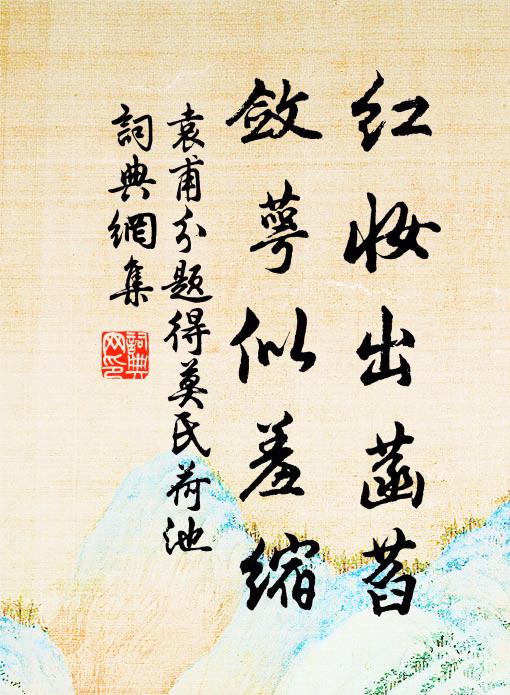 红妝出菡萏
斂萼似羞縮
袁甫分題得莫氏荷池
詞典網集
詞典网印